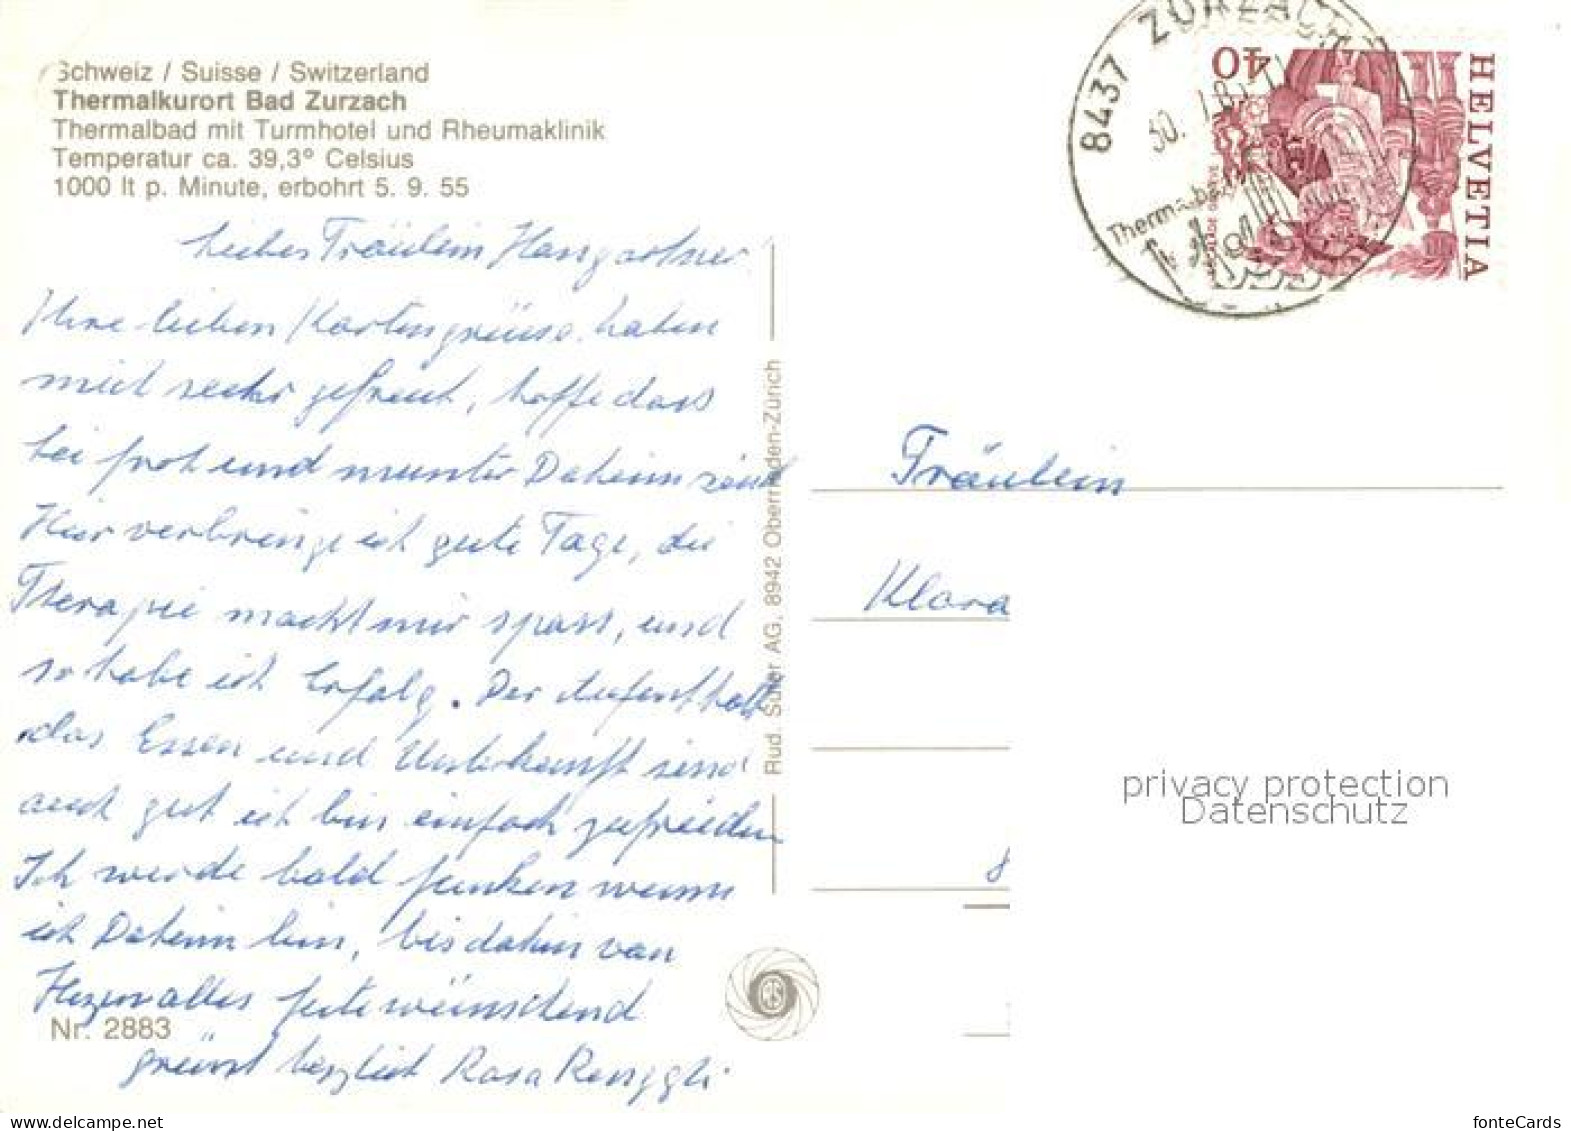 Schweiz / Suisse / Switzerland
Thermalkurort Bad Zurzach
Thermalbad mit Turmhotel und Rheumaklinik
Temperatur ca. 39,3° Celsius
1000 lt p. Minute, erbohrt 5. 9. 55
Liebes Fräulein Hangartner!
Ihre lieben Kartengrüsse haben
mich sechr gefreut, hoffe dass
sei froh und munter Daheim sind
Hier verbringe ich gute Tage, die
Therapie macht mir spass, und
so habe ich Erfolg. Der Aufenthalt
das Essen und Unterkunft sind
auch gut ich bin einfach zufrieden
Ich werde bald funken wenn
ich Daheim bin, bis dahin von
Herzen alles gute wünschend
grüsst herzlich Rosa Renggli
Nr. 2883
Rud. Suter AG, 8942 Oberrieden-Zürich
8437 ZURZACH
30.
Thermalbad
40
HELVETIA
Fräulein
Klara
8
privacy protection
Datenschutz
fonteCards